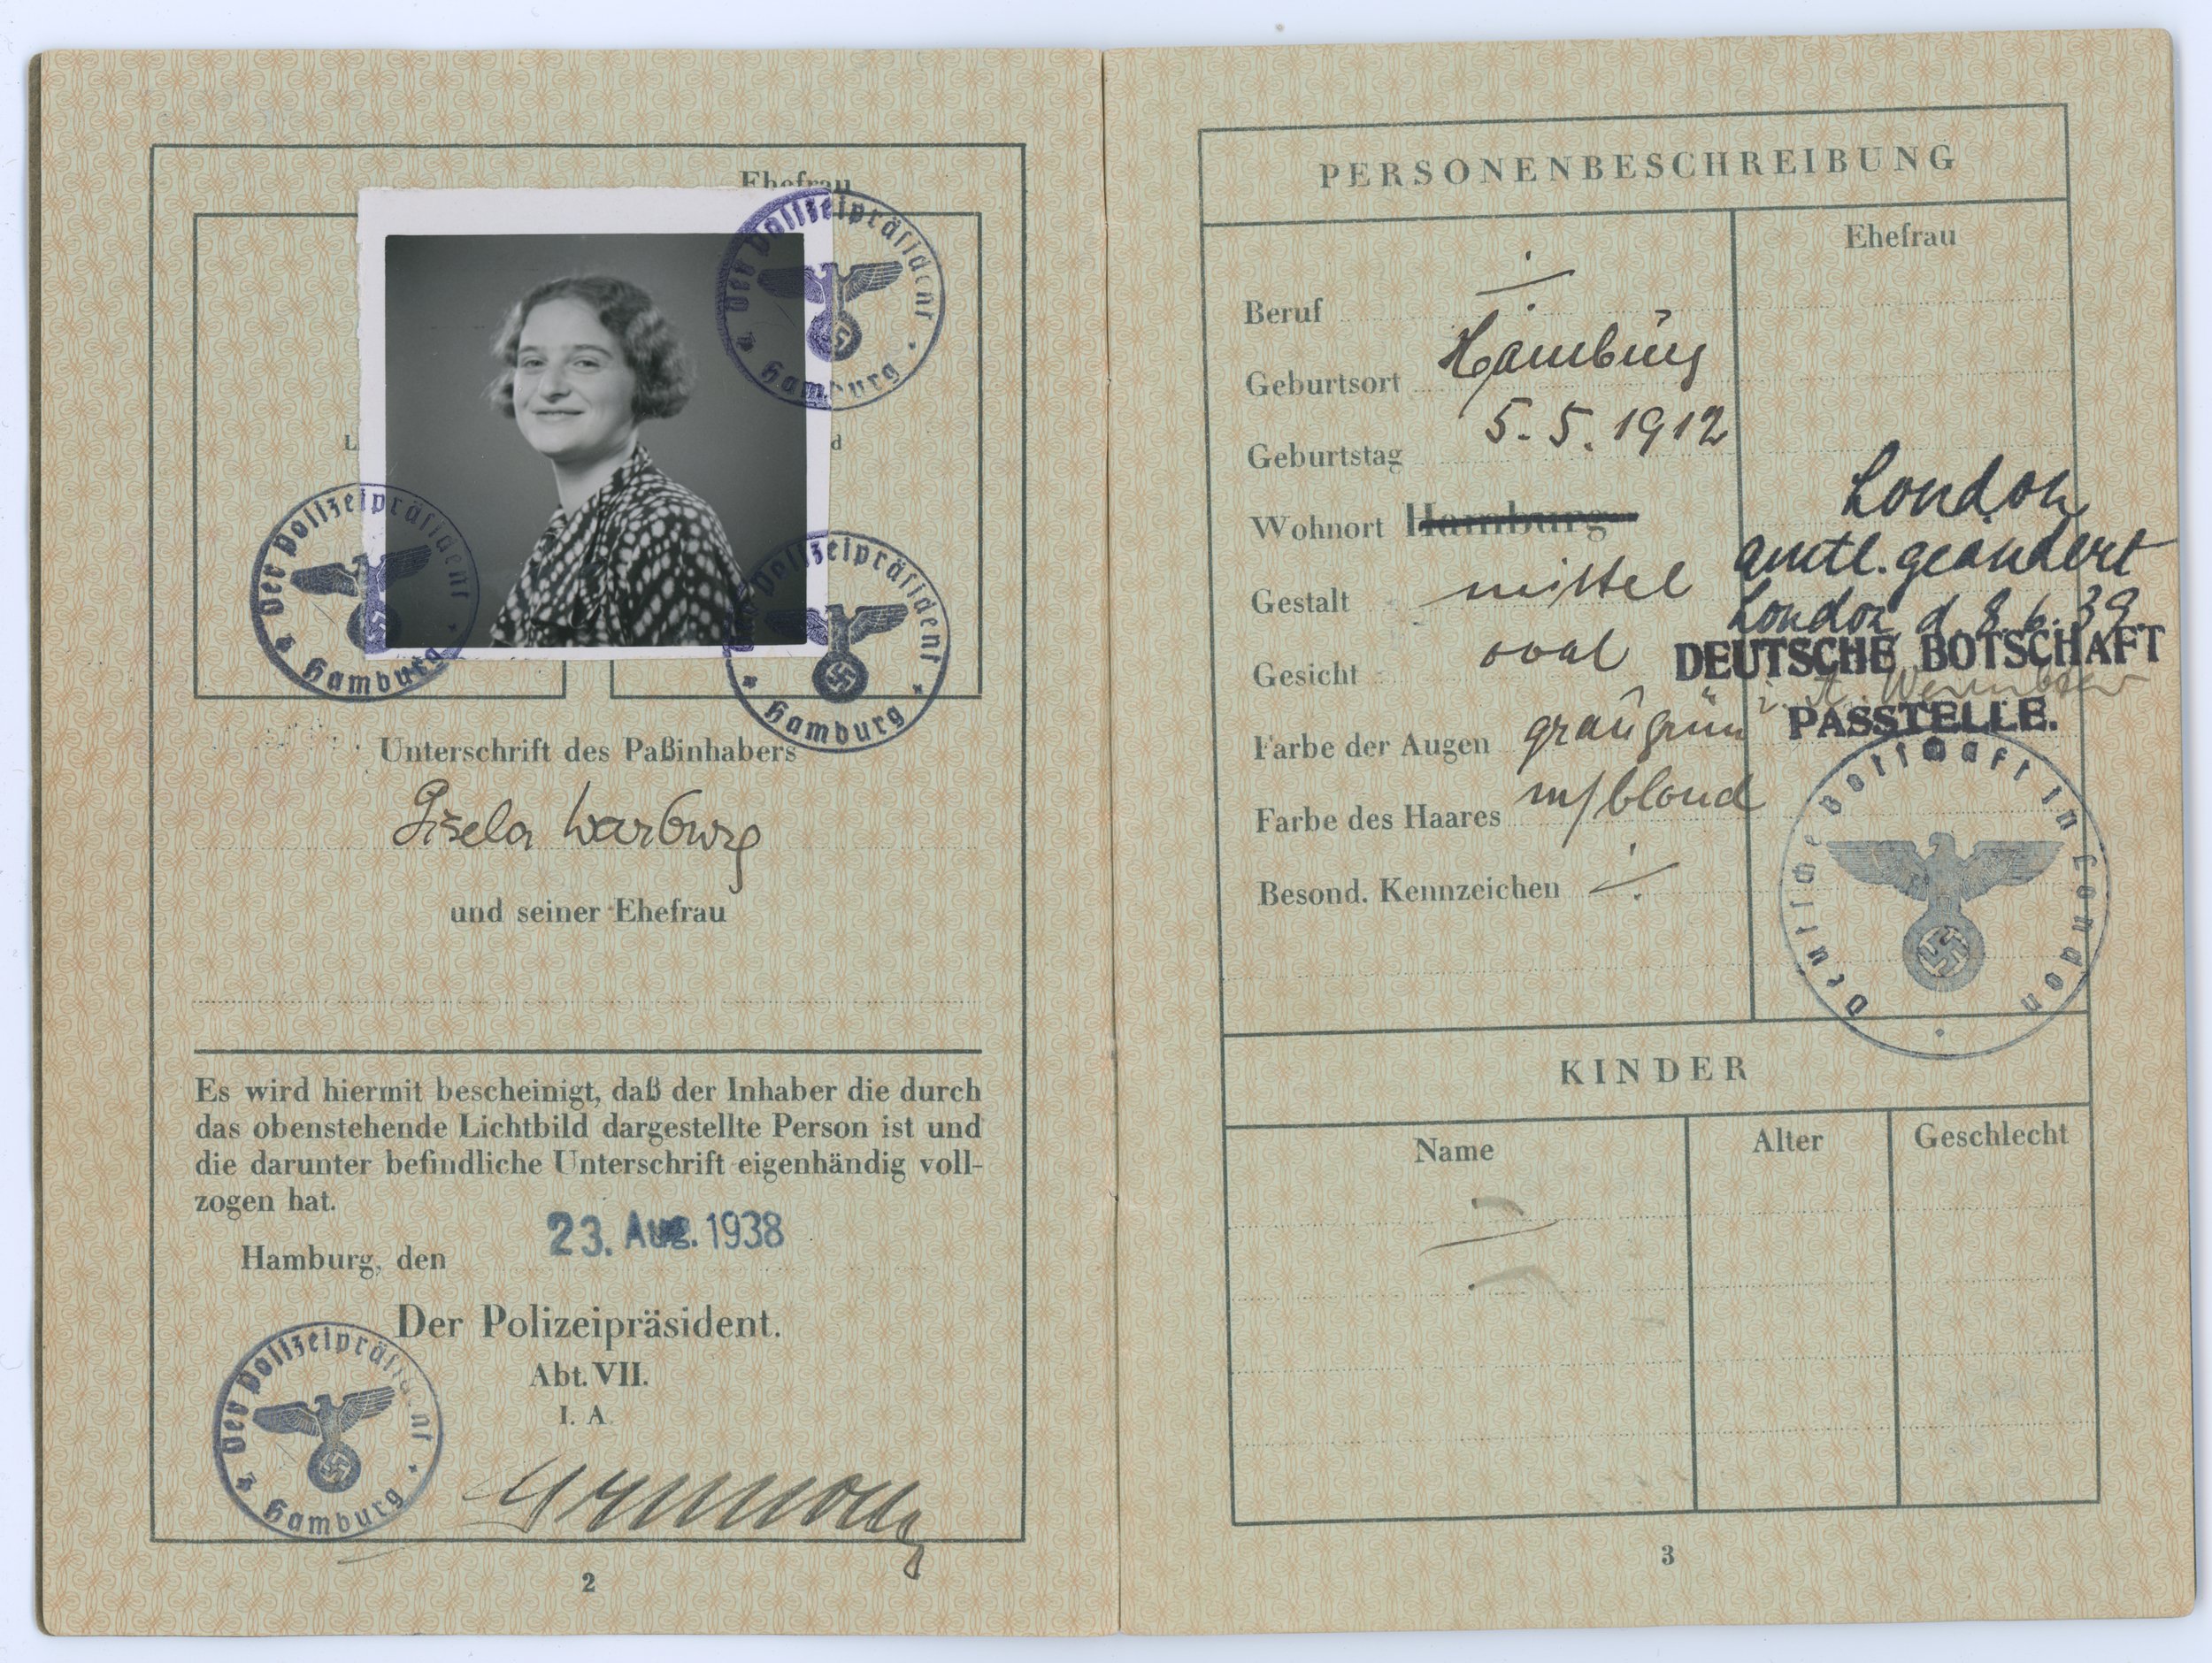 Ehefrau
Der Polizeipräsident
Hamburg
Der Polizeipräsident
Hamburg
Der Polizeipräsident
Hamburg
Unterschrift des Paßinhabers
Gisela Warburg
und seiner Ehefrau
Es wird hiermit bescheinigt, daß der Inhaber die durch
das obenstehende Lichtbild dargestellte Person ist und
die darunter befindliche Unterschrift eigenhändig voll-
zogen hat.
Hamburg, den 23. Aug. 1938
Der Polizeipräsident.
Abt. VII.
I. A.
Der Polizeipräsident
Hamburg
2
PERSONENBESCHREIBUNG
Ehefrau
Beruf
Geburtsort Hamburg
Geburtstag 5. 5. 1912
Wohnort Hamburg London
amtl. geändert
Gestalt mittel
London, d 8. 6. 39.
Gesicht oval
DEUTSCHE BOTSCHAFT
i. A.
PASSTELLE.
Farbe der Augen graugrün
Farbe des Haares m/blond
Besond. Kennzeichen
Deutsche Botschaft in London
KINDER
Name Alter Geschlecht
3